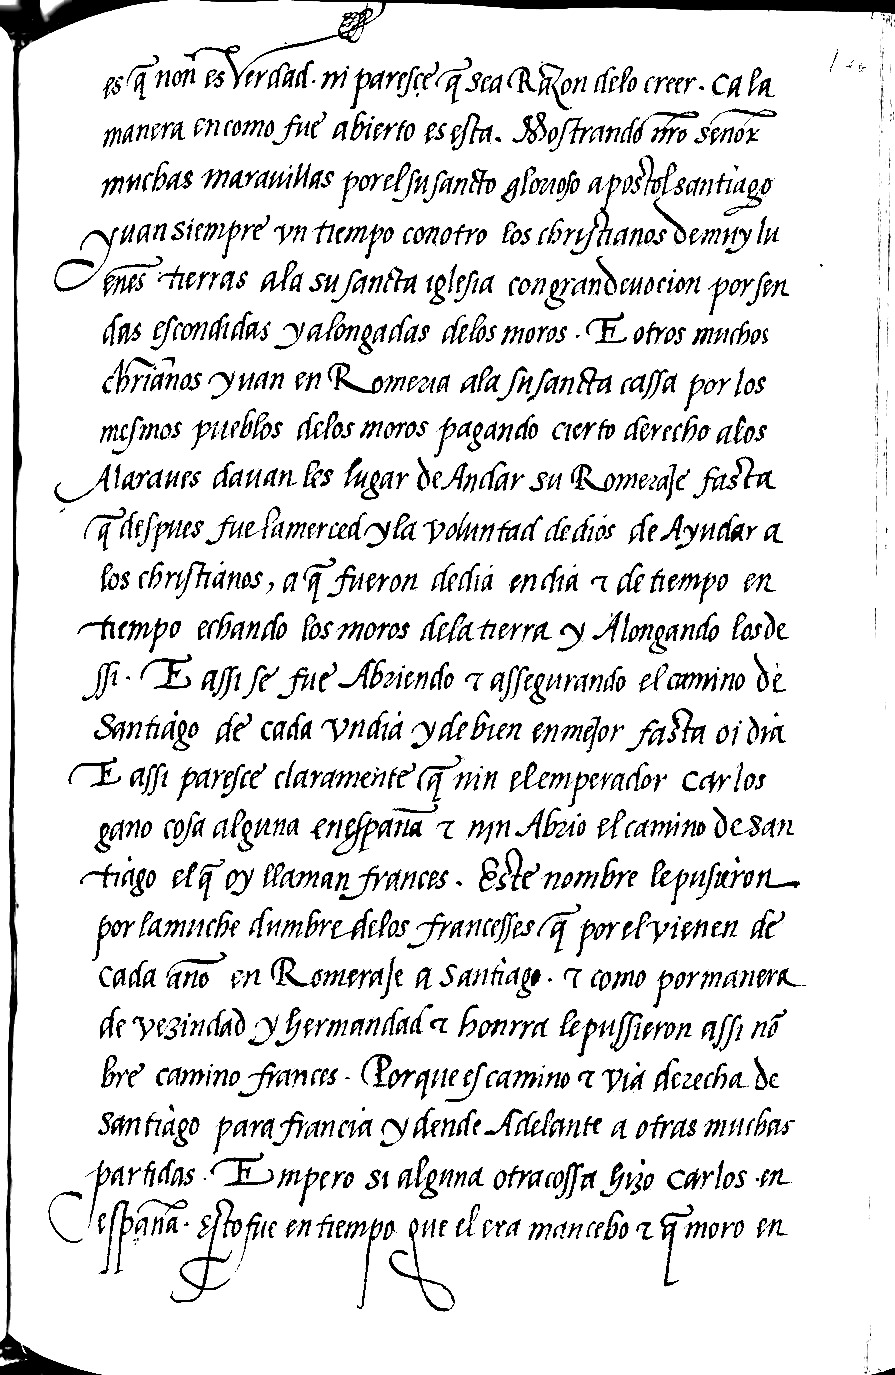 es q̄ non̄ es Verdad. ni paresçe q̄ sea Razon delo creer. Ca la
manera encomo fue abierto es esta. Mostrando nr̄o señor
muchas marauillas por el su sancto glorioso apostol santiago
yuan siempre vn tiempo conotro los christianos de muy lu
enēs tierras ala su sancta iglesia con gran deuocion por sen
das escondidas y alongadas delos moros. E otros muchos
chrīanos yuan en Romeria ala su sancta cassa por los
mesmos pueblos delos moros pagando cierto derecho alos
Alaraues dauan les lugar de Andar su Romeraje fasta
q̄ despues fue la merced y la voluntad de dios de Ayudar a
los christianos, a q̄ fueron de dia en dia ⁊ de tiempo en
tiempo echando los moros dela tierra y Alongando los de
ssi. E assi se fue Abriendo ⁊ assegurando el camino de
Santiago de cada vn dia y de bien en mejor fasta oi dia
E assi paresce claramente q̄ nin el emperador Carlos
gano cosa alguna en españa ⁊ nin Abrio el camino de san
tiago el q̄ oy llaman frances. Este nombre le pusieron
por la muche dumbre delos francesses q̄ por el vienen de
cada año en Romeraje a Santiago. ⁊ como por manera
de vezindad y hermandad ⁊ honrra le pussieron assi nō
bre camino frances. Porque es camino ⁊ via derecha de
Santiago para francia y dende Adelante a otras muchas
partidas. Empero si alguna otra cossa hizo Carlos en
españa. esto fue en tiempo que el era mancebo ⁊ q̄ moro en